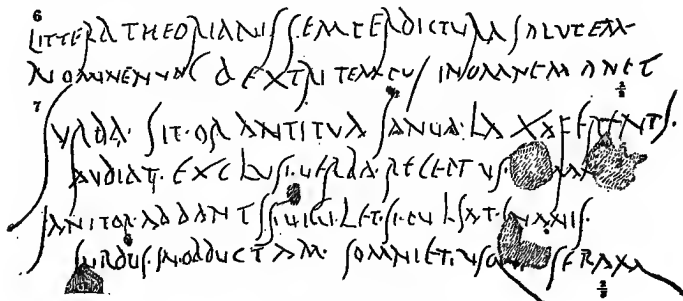 6
LITTERA THEORIANIS SEMPER DICTURA SALUTEM
NOMINE NUNC DEXTRI TEMPUS IN OMNE MANET
7
SURDA · SIT · ORANTI TUA IANUA · LAXA FERENTI ·
AUDIAT · EXCLUSI · UERBA · RECEPTUS ·
IANITOR · AD DANTIS UIGILET · SI · PULSAT · INANIS ·
SURDUS · IN · OBDUCTAM · SOMNIET · SERAM